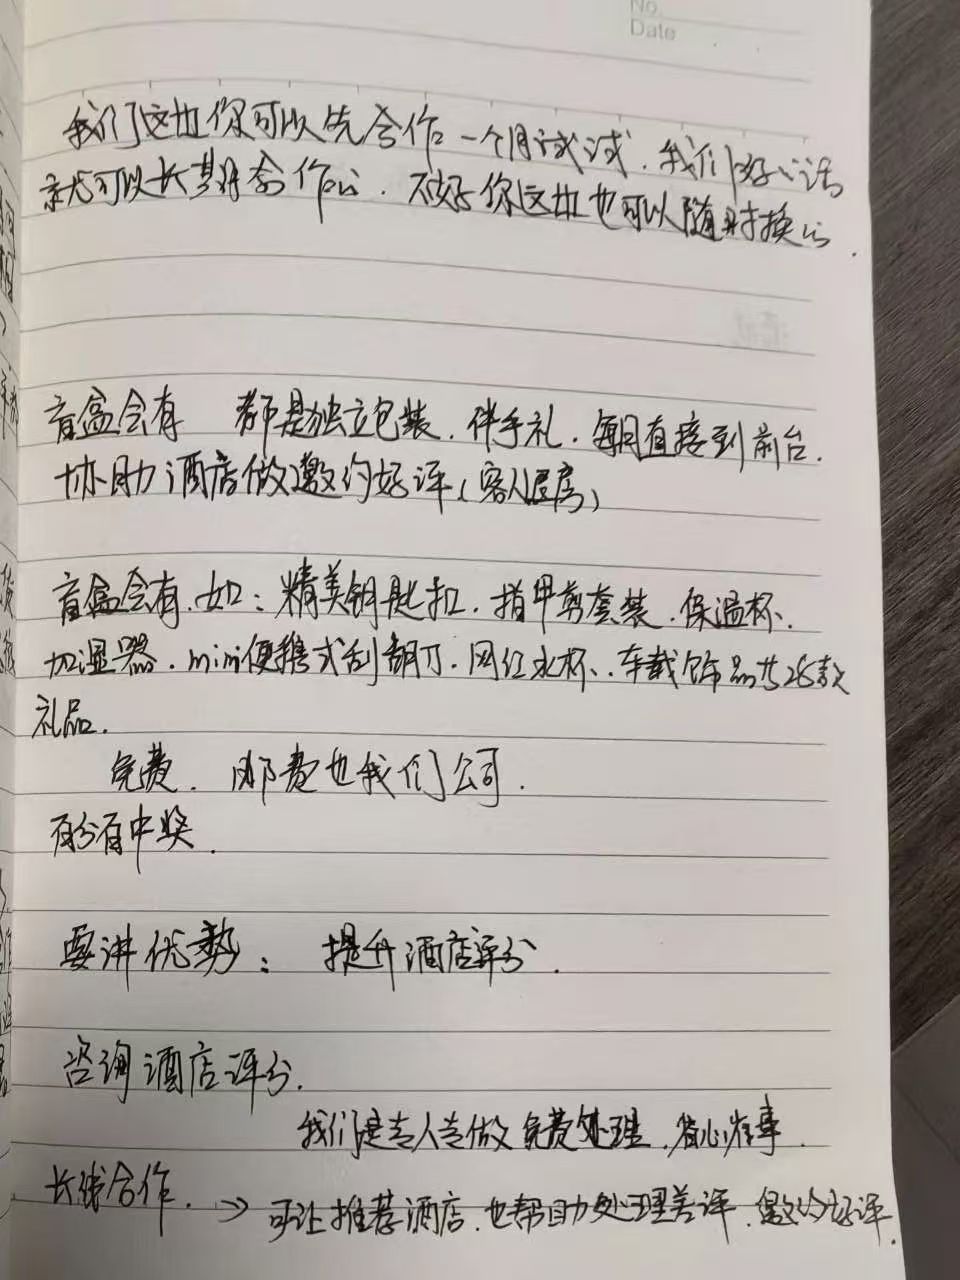 No.
Date
我们这边你可以先合作一个月试试.我们好的话
就可以长期合作的.不好你这边也可以随时换的.
盲盒会有 都是独立包装.伴手礼.每月直接到前台.
协助酒店做邀约好评(客人屋房)
盲盒会有.如:精美钥匙扣.指甲剪套装.保温杯、
加湿器.mini便携式刮胡刀.网红水杯、车载饰品共26款
礼品.
免费.邮费也我们公司.
百分百中奖.
要讲优势:提升酒店评分.
咨询酒店评分.
我们是专人专做免费处理,省心省事.
长线合作.→可让推荐酒店.也帮助处理差评.邀约好评.